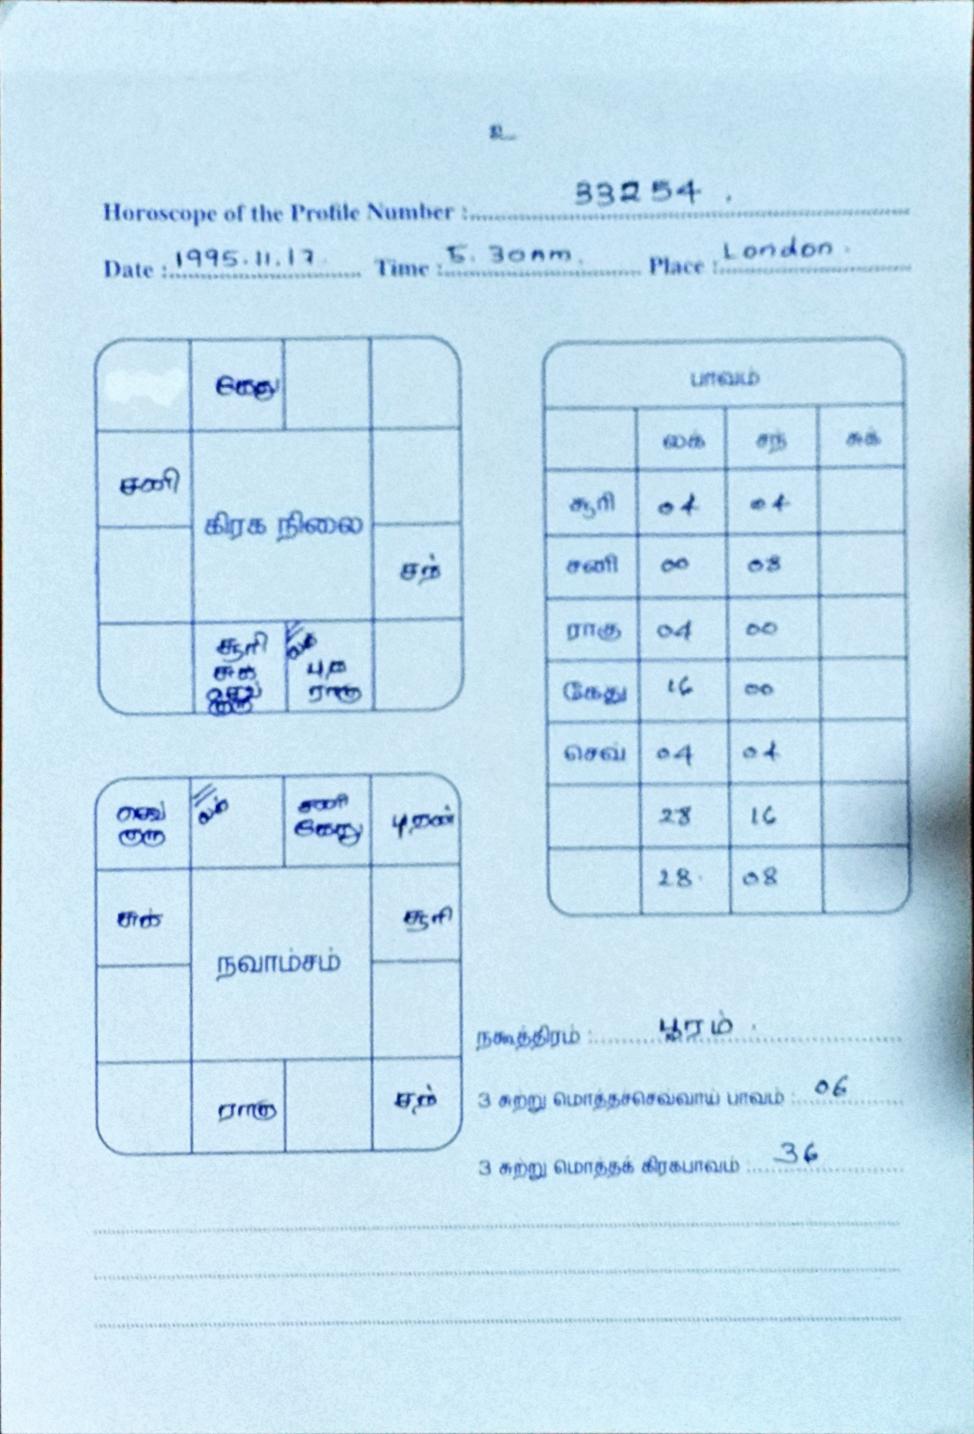 உ
Horoscope of the Profile Number : 33254.
Date : 1995.11.17. Time : 5.30am. Place : London.
கேது
சனி
கிரக நிலை
சந்
சூரி லக்
சுக் புத
செவ் ராகு
குரு
பாவம்
லக் சந் சுக்
சூரி 04 04
சனி 00 08
ராகு 04 00
கேது 16 00
செவ் 04 04
28 16
28. 08
செவ் லக் சனி புதன்
குரு கேது
சுக் சூரி
நவாம்சம்
ராகு சந்
நக்ஷத்திரம் : பூரம்.
3 சுற்று மொத்தச்செவ்வாய் பாவம் : 06
3 சுற்று மொத்தக் கிரகபாவம் : 36